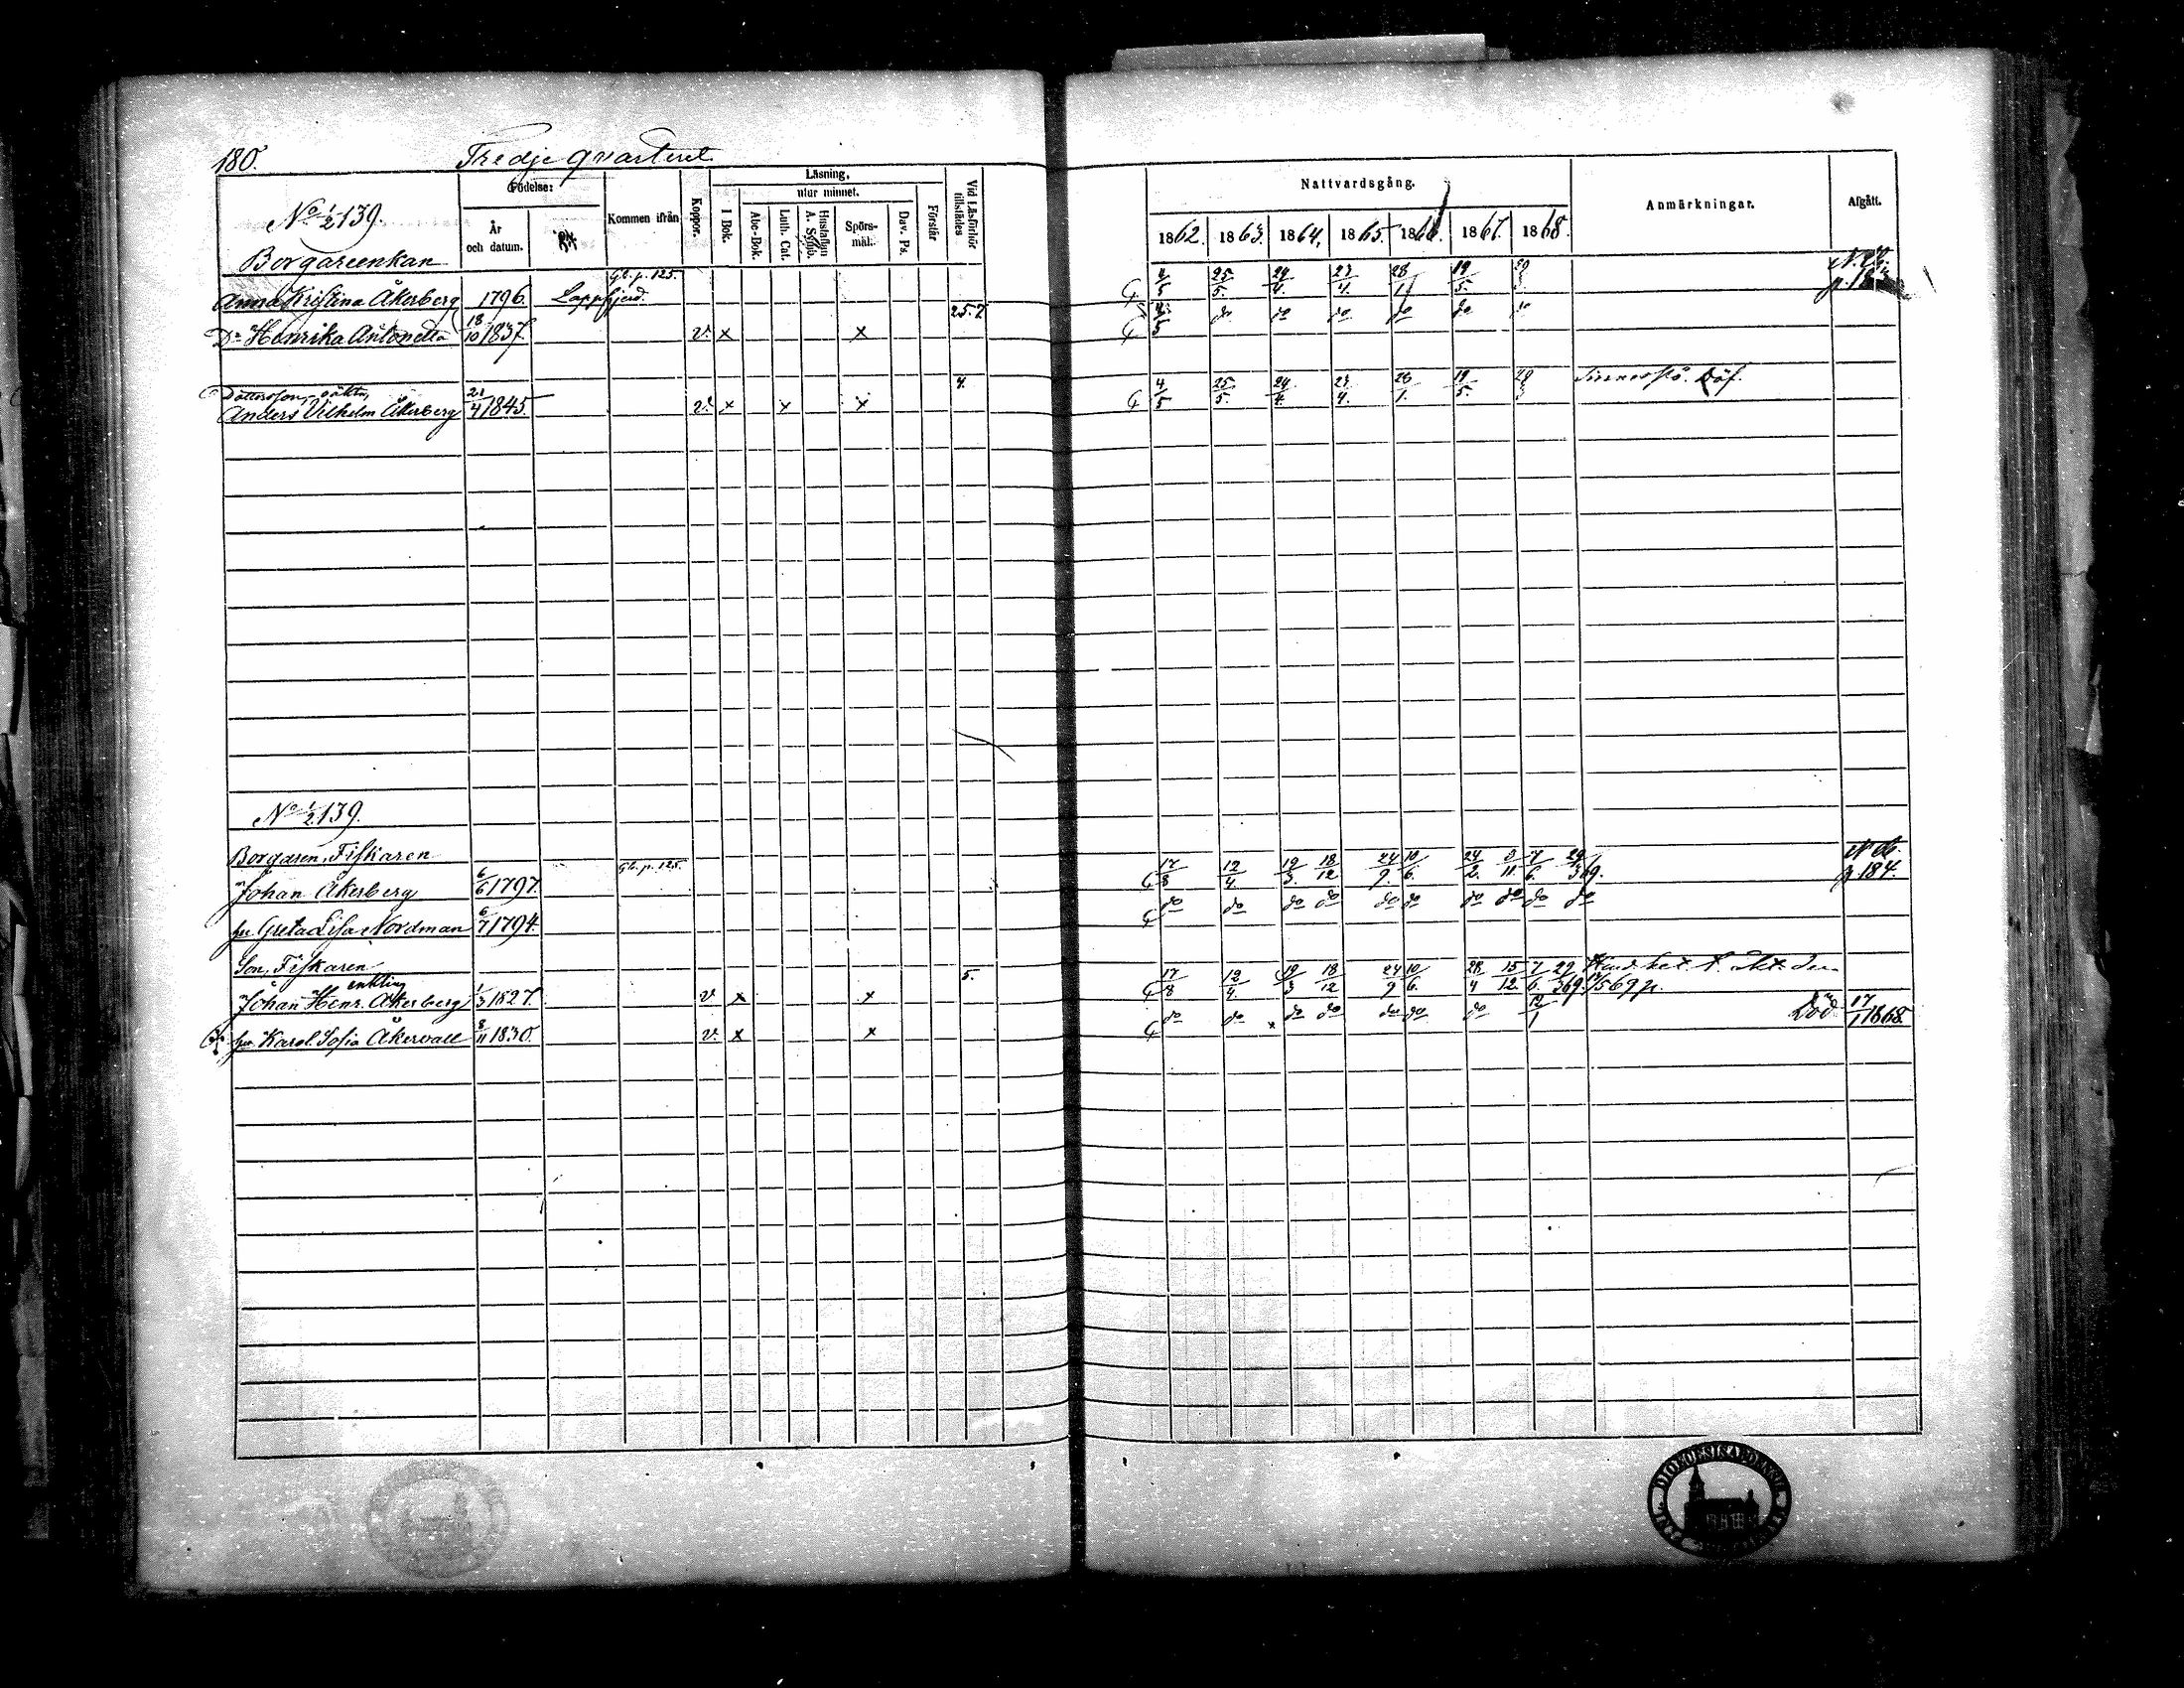 180. Tredje qvarteret
Födelse: Läsning, Nattvardsgång.
utur minnet.
No 1/2 139. År och datum. Kommen ifrån Koppor. I Bok. Abc-Bok. Luth. Cat. Hustaflan A. Symb. Spörsmål. Dav. Ps. Förstår Vid Läsförhör tillstädes 1862. 1863. 1864. 1865. 1866. 1867. 1868. Anmärkningar. Afgått.
Borgareenkan
Anna Kristina Åkerberg 1796. Lappfjerd. Gl. p. 125. 4/5 25/5. 24/4. 23/4. 28/1. 19/5.
Dr Henrika Antonetta 18/10 1837. v. x x 25.7 do do do do do do
Dotterson, oäkta,
Anders Vilhelm Åkerberg 21/4 1845. v. x x x 4. 4/5 25/5. 24/4. 23/4. 28/1. 19/5. Sinnesslö. Döf.
No 1/2 139.
Borgaren, Fiskaren
Johan Åkerberg 6/6 1797. Gl. p. 125. 17/8 12/4. 19/3. 18/12 24/9. 10/6. 24/2. 3/11. 7/6. 29/3 69. p 184.
hu Greta Lisa Nordman 6/7 1794. do do do do do do do do do do
Son, Fiskaren
enkling
Johan Henr. Åkerberg 1/3 1827. v x x 5. 17/8 12/4. 19/3 18/12 24/9 10/6. 28/4 15/12. 7/6. 29/3 69.
hu Karol. Sofia Åkervall 8/11 1830. v. x x do do x do do do do do 12/1 Död 17/1 1868.